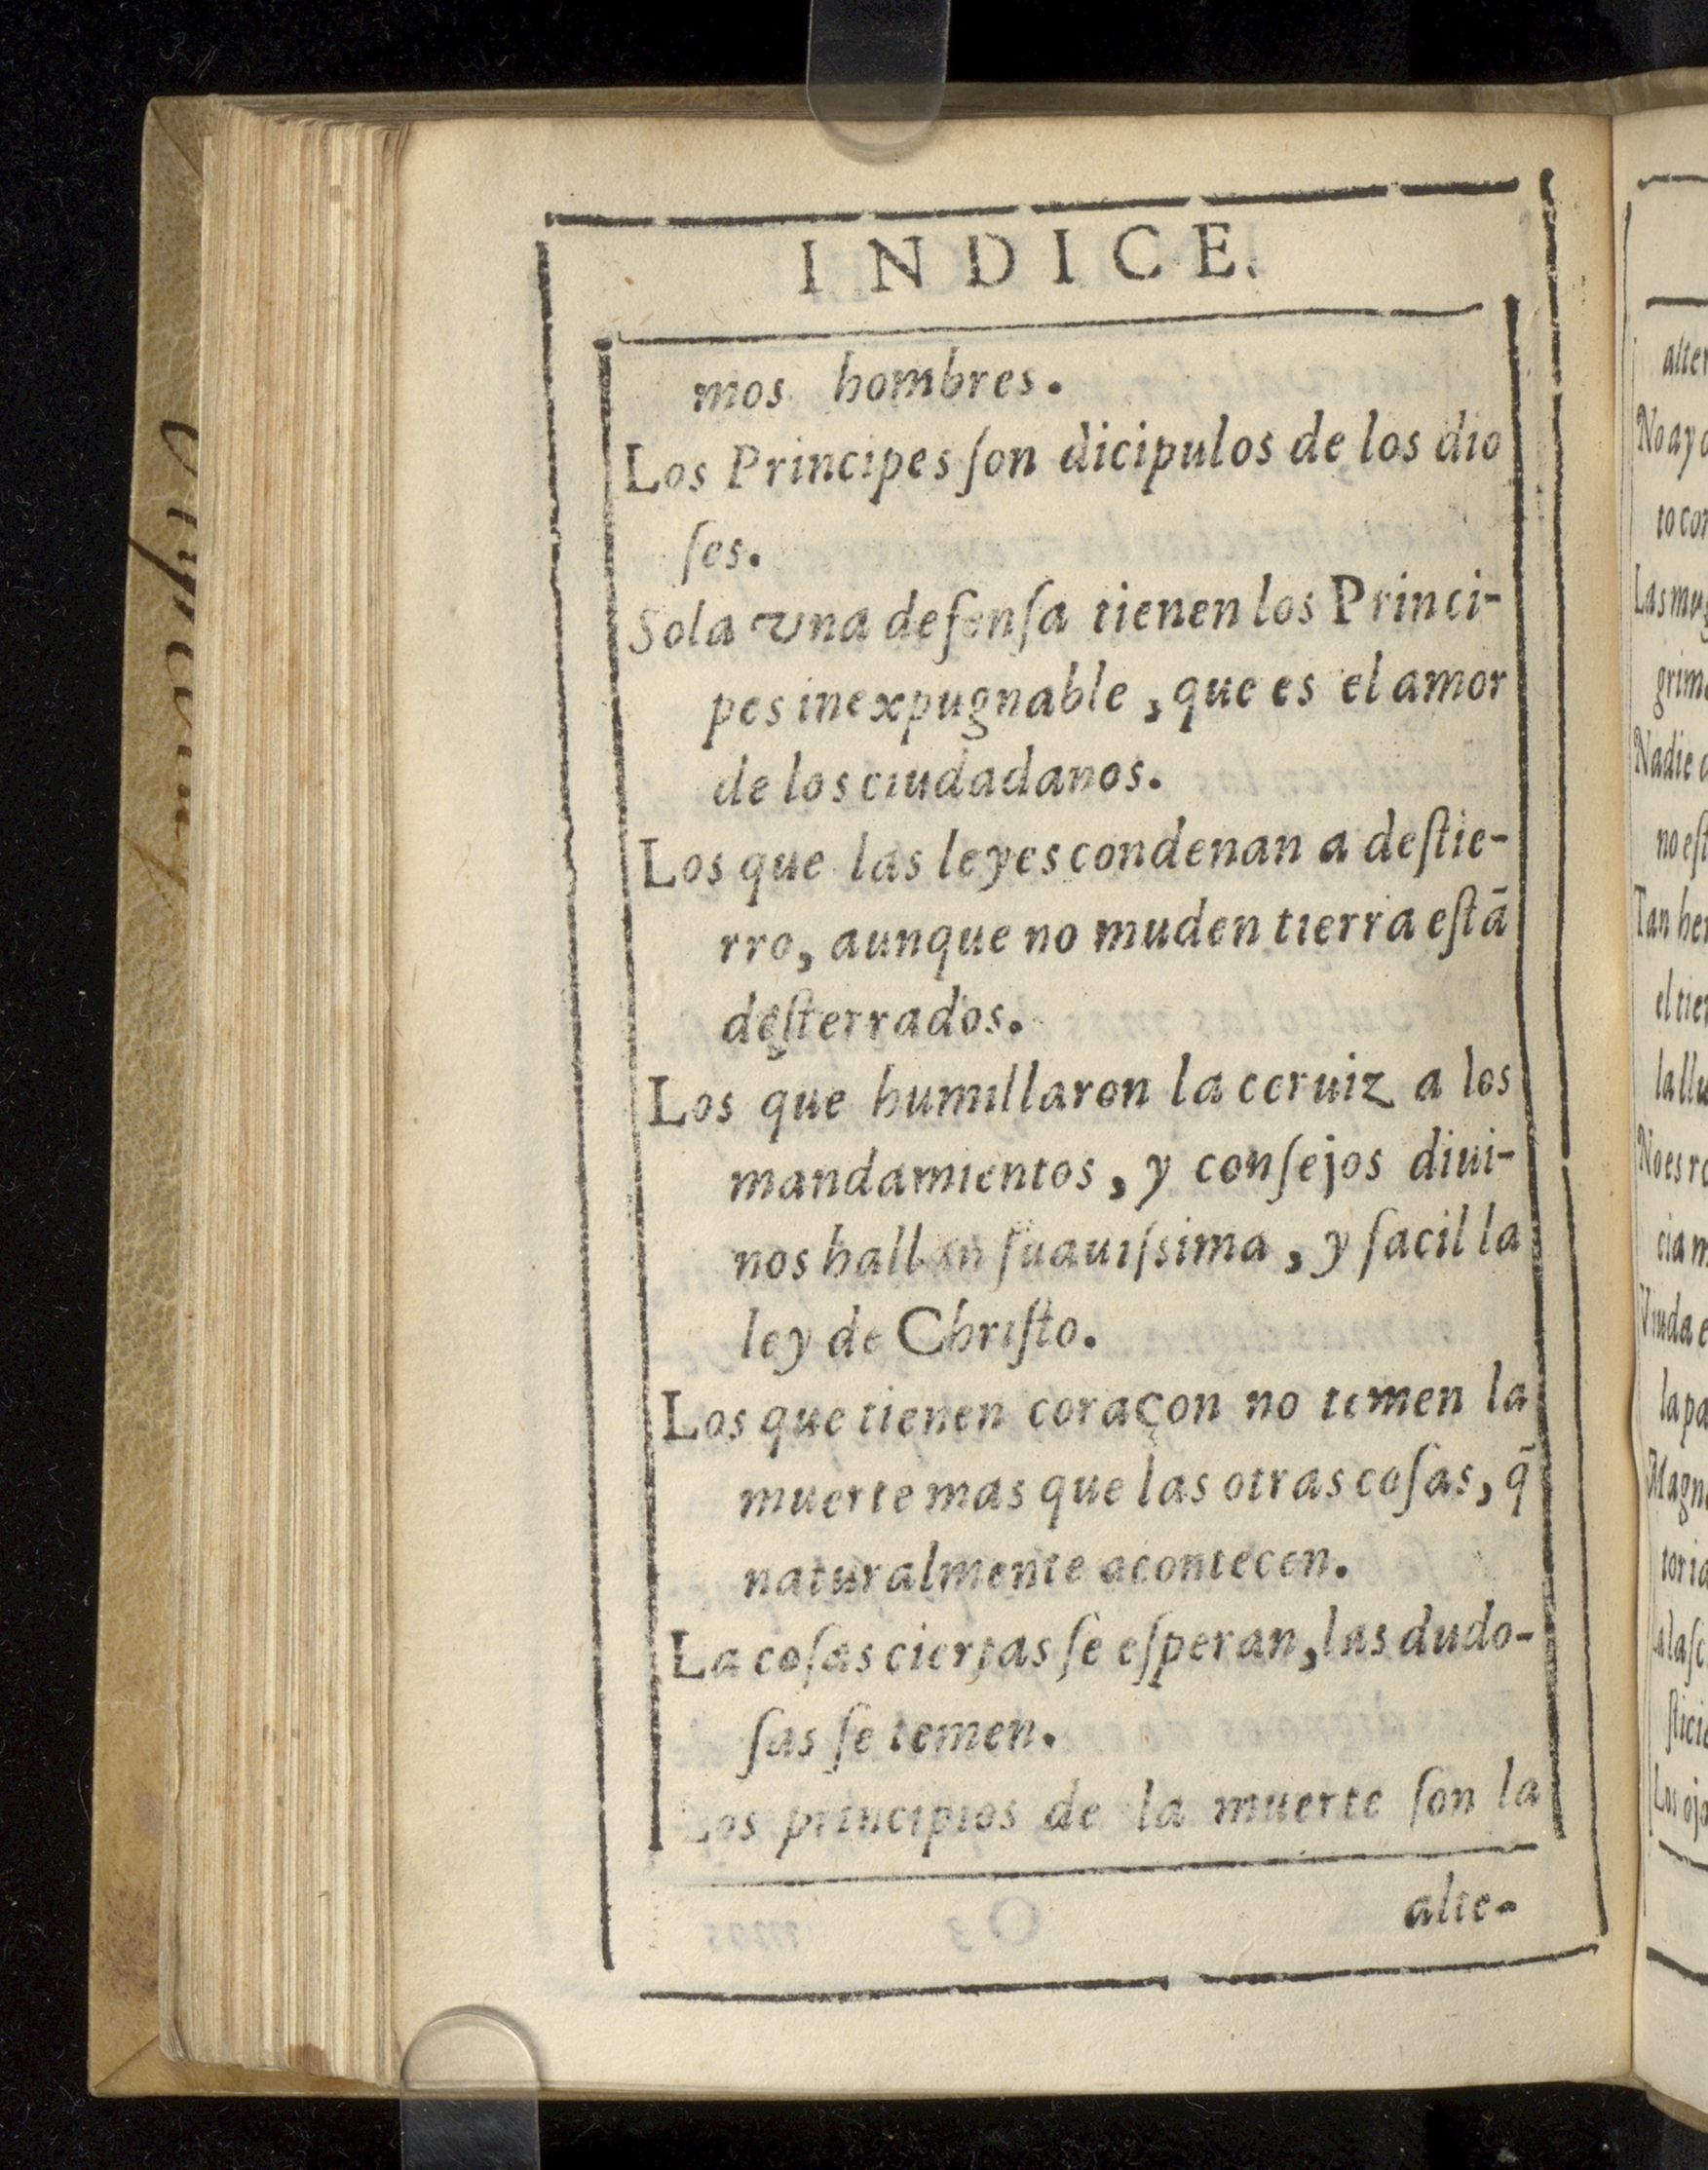 INDICE.
mos hombres.
Los Principes ſon dicipulos de los dio
ſes.
Sola vna defenſa tienen los Princi-
pes inexpugnable, que es el amor
de los ciudadanos.
Los que las leyes condenan a deſtie-
rro, aunque no muden tierra eſtā
deſterrados.
Los que humillaron la ceruiz a los
mandamientos, y conſejos diui-
nos hallan ſuauiſsima, y facil la
ley de Chriſto.
Los que tienen coraçon no temen la
muerte mas que las otras coſas, q̄
naturalmente acontecen.
La coſas ciertas ſe eſperan, las dudo-
ſas ſe temen.
Los principios de la muerte ſon la
alte-
alter
No ay
to con
Las mug
grima
Nadie
no eſt
Tan her
el tie
la llu
No es
cia m
Viuda
la pa
Magn
toria
a laſc
ſticia
Los ojo